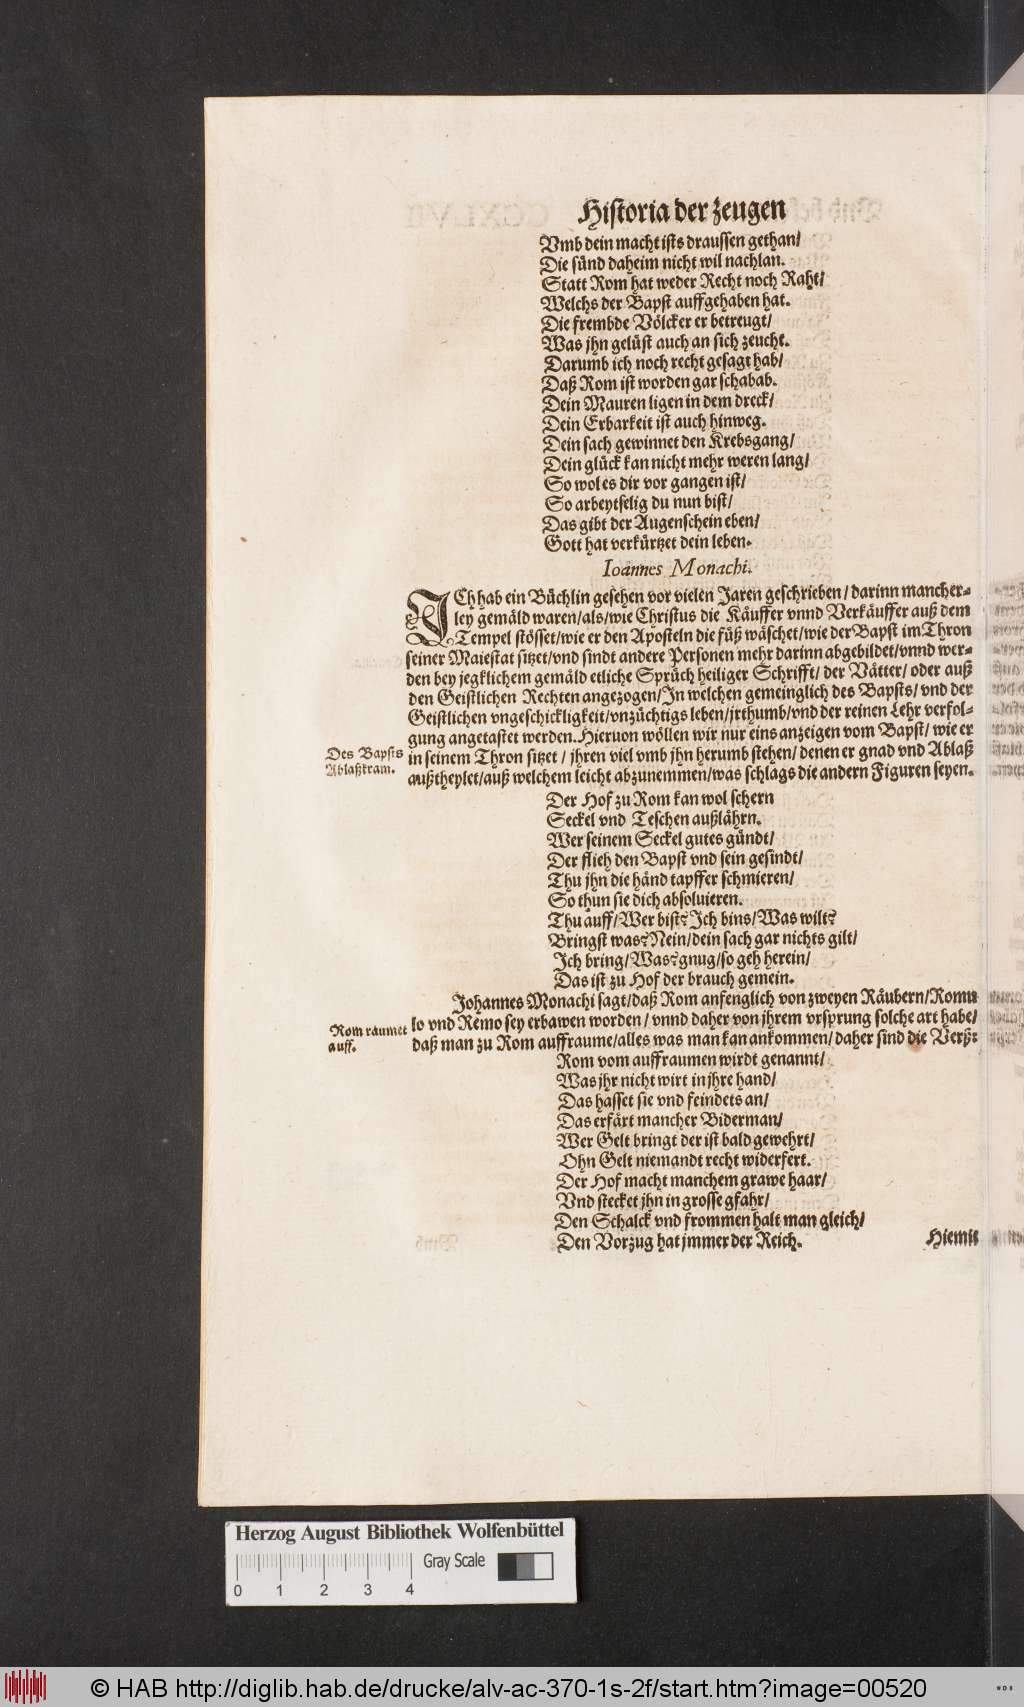 Historia der zeugen
Vmb dein macht ists draussen gethan/
Die sünd daheim nicht wil nachlan.
Statt Rom hat weder Recht noch Raht/
Welchs der Bapst auffgehaben hat.
Die frembde Völcker er betreugt/
Was jhn gelüst auch an sich zeucht.
Darumb ich noch recht gesagt hab/
Daß Rom ist worden gar schabab.
Dein Mauren ligen in dem dreck/
Dein Erbarkeit ist auch hinweg.
Dein sach gewinnet den Krebsgang/
Dein glück kan nicht mehr weren lang/
So wol es dir vor gangen ist/
So arbeytselig du nun bist/
Das gibt der Augenschein eben/
Gott hat verkürtzet dein leben.
Ioannes Monachi.
ICh hab ein Büchlin gesehen vor vielen Jaren geschrieben/ darinn mancher-
ley gemäld waren/als/wie Christus die Käuffer vnnd Verkäuffer auß dem
Tempel stösset/wie er den Aposteln die füß wäschet/wie der Bapst im Thron
seiner Maiestat sitzet/vnd sindt andere Personen mehr darinn abgebildet/vnnd wer-
den bey jegklichem gemäld etliche Sprüch heiliger Schrifft/ der Vätter/ oder auß
den Geistlichen Rechten angezogen/In welchen gemeinglich des Bapsts/ vnd der
Geistlichen vngeschickligkeit/vnzüchtigs leben/jrthumb/vnd der reinen Lehr verfol-
gung angetastet werden.Hieruon wöllen wir nur eins anzeigen vom Bapst/ wie er
Des Bapsts
Ablaßkram.
in seinem Thron sitzet / jhren viel vmb jhn herumb stehen/ denen er gnad vnd Ablaß
außtheylet/auß welchem leicht abzunemmen/was schlags die andern Figuren seyen.
Der Hof zu Rom kan wol schern
Seckel vnd Teschen außlährn.
Wer seinem Seckel gutes gündt/
Der flieh den Bapst vnd sein gesindt/
Thu jhn die händ tapffer schmieren/
So thun sie dich absoluieren.
Thu auff/Wer bist? Ich bins/Was wilt?
Bringst was? Nein/dein sach gar nichts gilt/
Ich bring/Was? gnug/so geh herein/
Das ist zu Hof der brauch gemein.
Johannes Monachi sagt/daß Rom anfenglich von zweyen Räubern/Romu
lo vnd Remo sey erbawen worden/ vnnd daher von jhrem vrsprung solche art habe/
Rom raumet
auff.
daß man zu Rom auffraume/alles was man kan ankommen/daher sind die Verß:
Rom vom auffraumen wirdt genannt/
Was jhr nicht wirt in jhre hand/
Das hasset sie vnd feindets an/
Das erfärt mancher Biderman/
Wer Gelt bringt der ist bald gewehrt/
Ohn Gelt niemandt recht widerfert.
Der Hof macht manchem grawe haar/
Vnd stecket jhn in grosse gfahr/
Den Schalck vnd frommen halt man gleich/
Den Vorzug hat jmmer der Reich.
Hiemit
Herzog August Bibliothek Wolfenbüttel
Gray Scale
0 1 2 3 4
© HAB http://diglib.hab.de/drucke/alv-ac-370-1s-2f/start.htm?image=00520